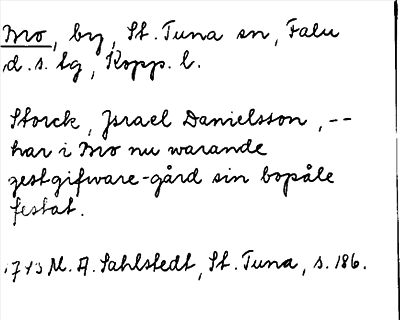 Mo, by, St. Tuna sn, Falu
d.s. lg, Kopp. l.
Storck, Jsrael Danielsson, --
har i Mo nu warande
gestgifware-gård sin bopåle
festat.
M. A. Sahlstedt, St. Tuna, s. 186.